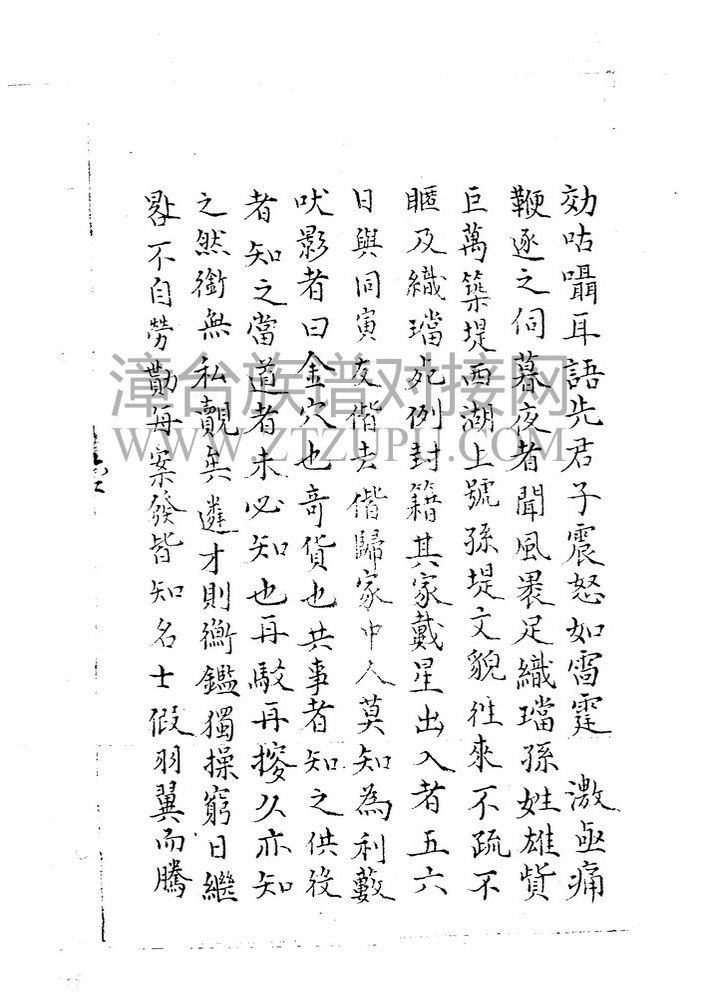 効咕囁耳語先君子震怒如雷霆 激亟痛
鞭逐之伺暮夜者聞風褁足織璫孫姓雄貲
巨萬築堤西湖上號孫堤文貌徃來不疏不
暱及織璫死例封籍其家戴星出入者五六
日與同寅友偕去偕歸家中人莫知為利藪
吠影者曰金穴也竒貨也共事者知之供役
者知之當道者未必知也再駁再搜久亦知
之然衙無私覿矣遴才則衡鑑獨操窮日繼
晷不自勞勩每案發皆知名士假羽翼而騰
漳台族谱对接网
WWW.ZTZUPU.COM